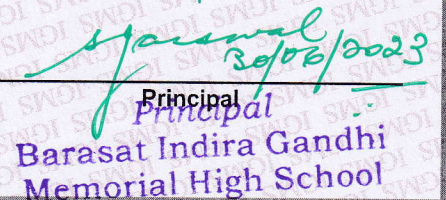 30/06/2023
Principal
Principal
Barasat Indira Gandhi
Memorial High School